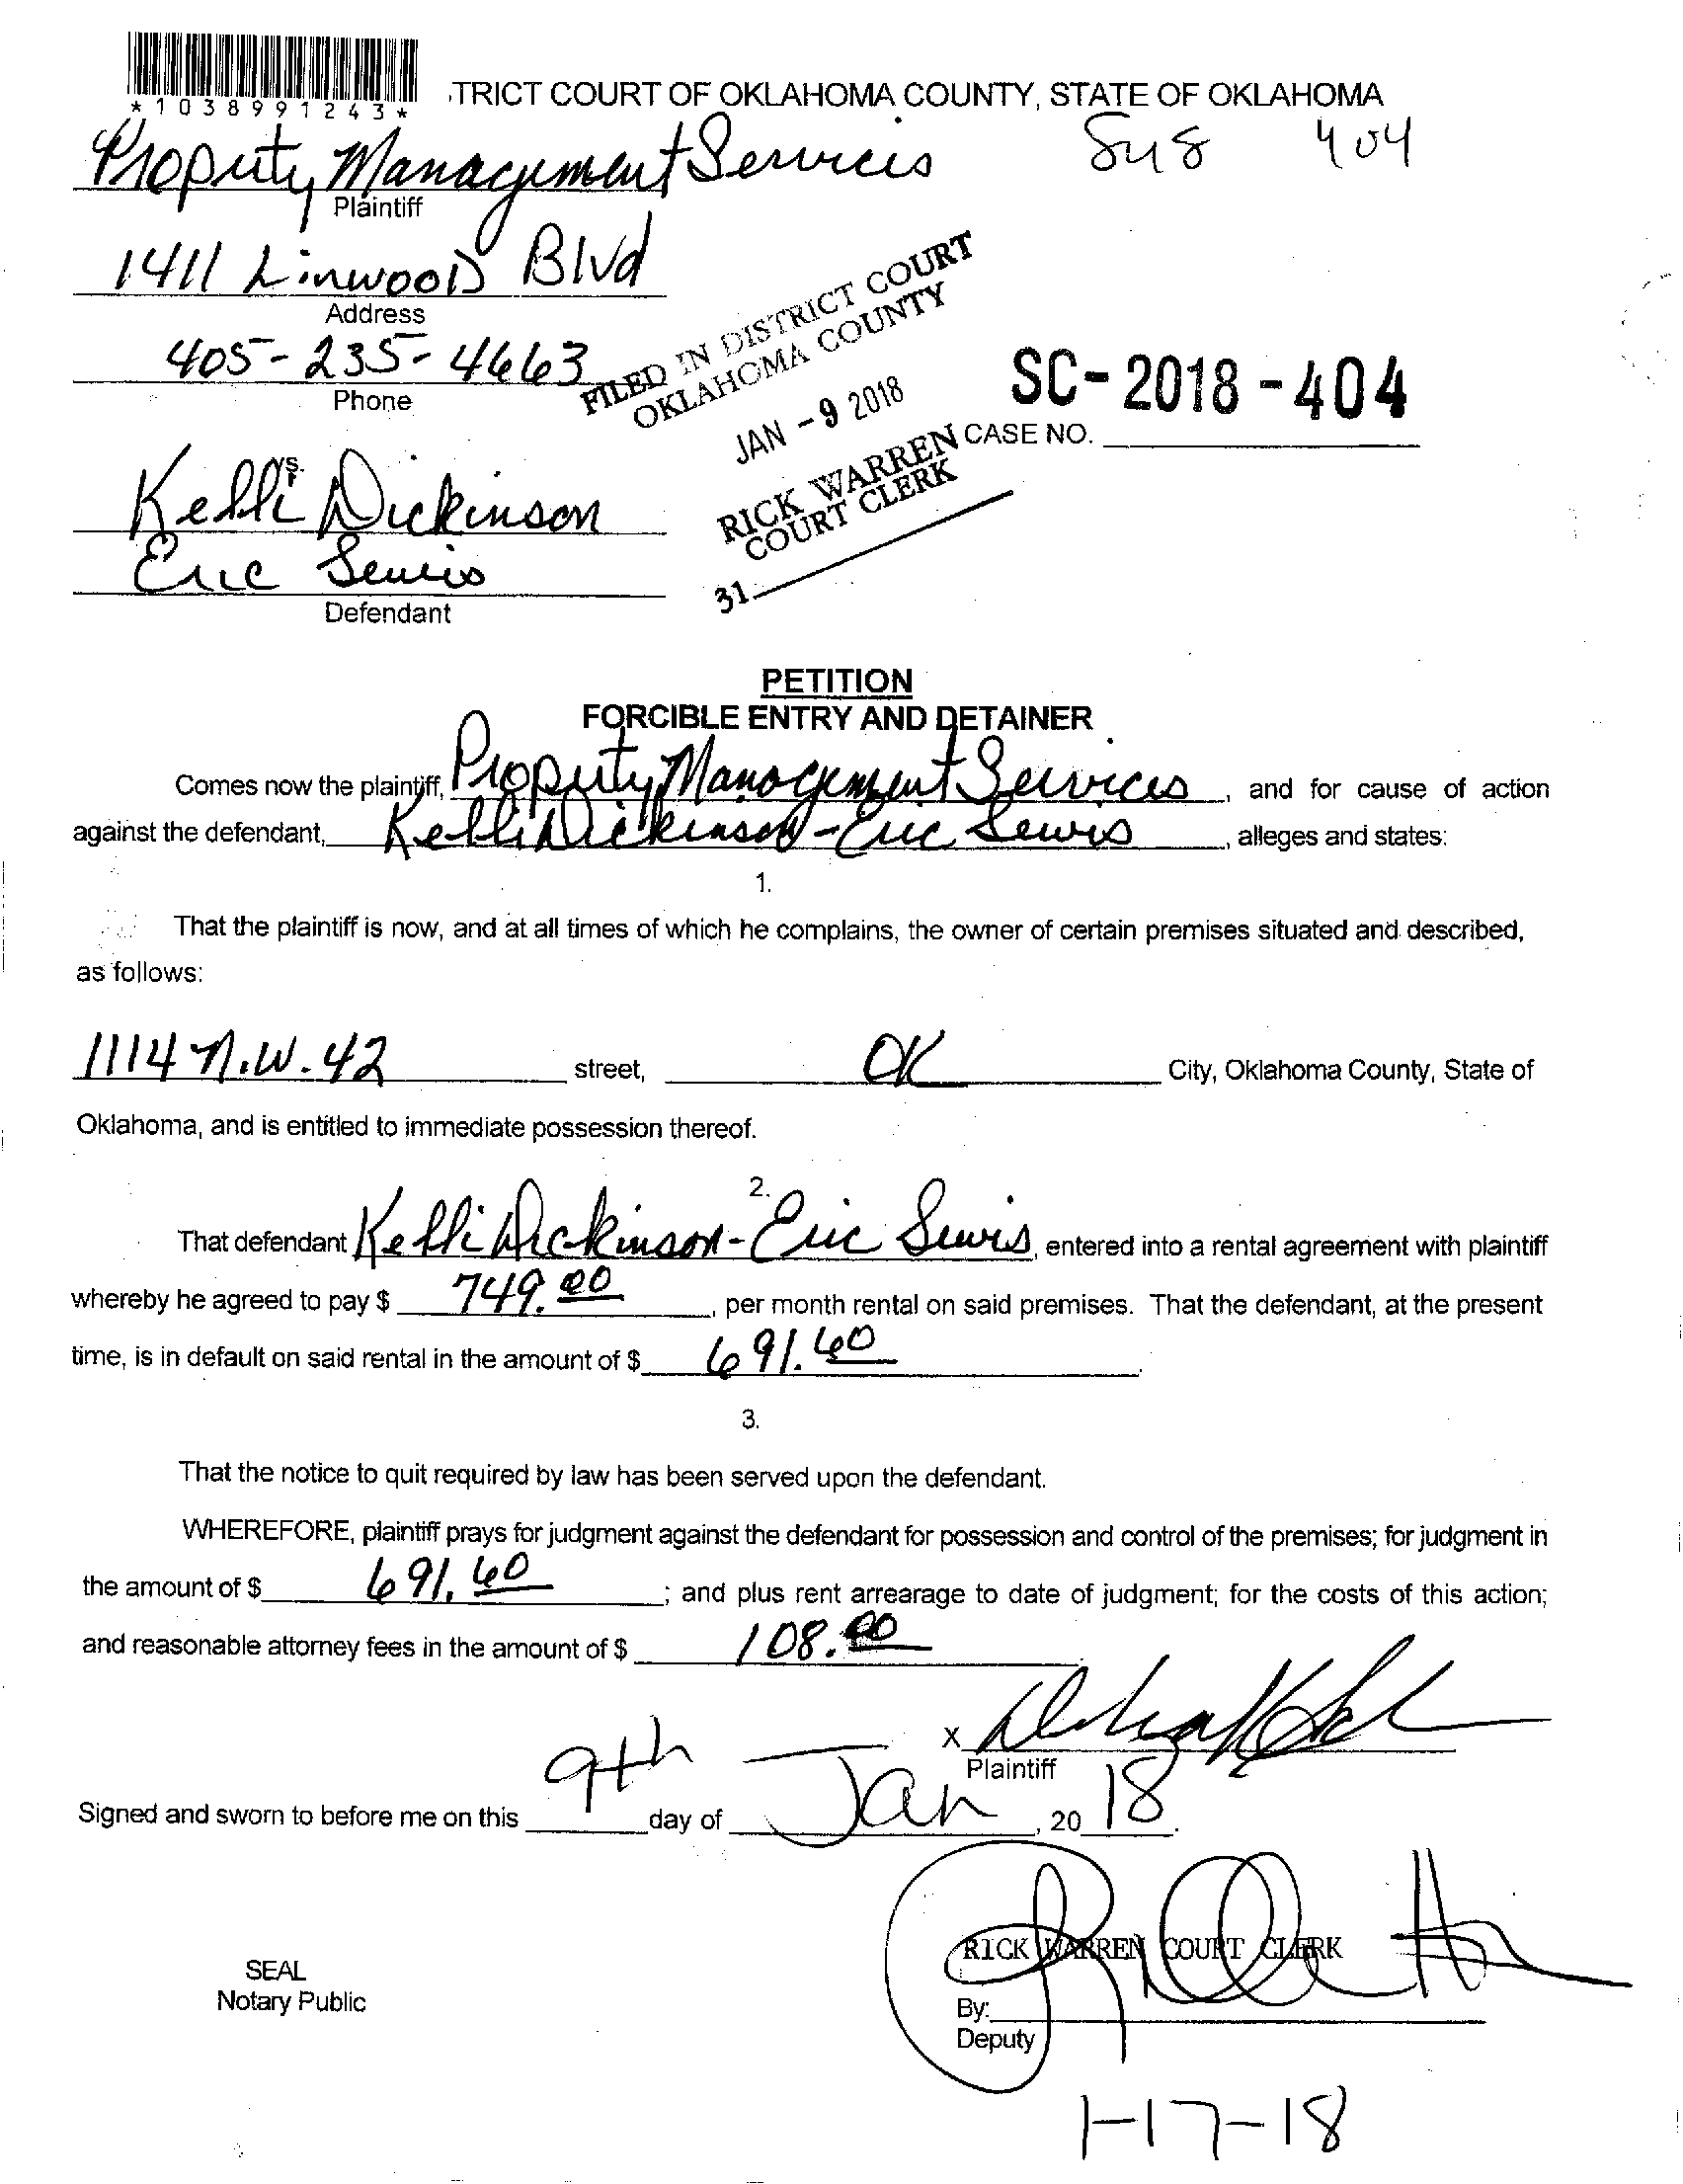 *1038991243*
TRICT COURT OF OKLAHOMA COUNTY, STATE OF OKLAHOMA
Property Management Services
404
Plaintiff
1411 Linwood Blvd
Address
405-235-4663
Phone
FILED IN DISTRICT COURT
OKLAHOMA COUNTY
JAN - 9 2018
RICK WARREN
COURT CLERK
31
SC-2018-404
CASE NO.
vs.
Kelli Dickinson
Eric Lewis
Defendant
PETITION
FORCIBLE ENTRY AND DETAINER
Comes now the plaintiff, Property Management Services, and for cause of action
against the defendant, Kelli Dickinson-Eric Lewis, alleges and states:
1.
That the plaintiff is now, and at all times of which he complains, the owner of certain premises situated and described,
as follows:
1114 N.W. 42 street, OK City, Oklahoma County, State of
Oklahoma, and is entitled to immediate possession thereof.
2.
That defendant Kelli Dickinson-Eric Lewis, entered into a rental agreement with plaintiff
whereby he agreed to pay $ 749.00, per month rental on said premises. That the defendant, at the present
time, is in default on said rental in the amount of $ 691.60.
3.
That the notice to quit required by law has been served upon the defendant.
WHEREFORE, plaintiff prays for judgment against the defendant for possession and control of the premises; for judgment in
the amount of $ 691.60; and plus rent arrearage to date of judgment; for the costs of this action;
and reasonable attorney fees in the amount of $ 108.00
X
Plaintiff
Signed and sworn to before me on this 9th day of Jan, 2018.
RICK WARREN COURT CLERK
SEAL
Notary Public
By:
Deputy
1-17-18